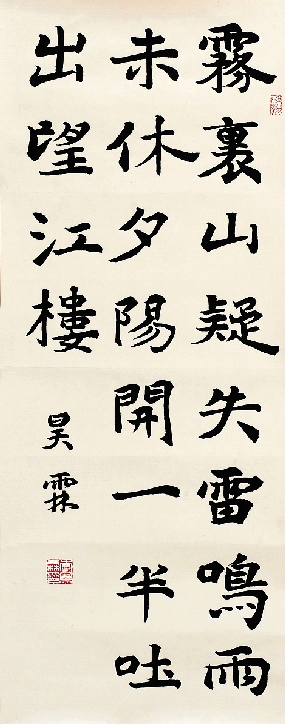 霧裏山疑失雷鳴雨
未休夕陽開一半吐
出望江樓
昊霖